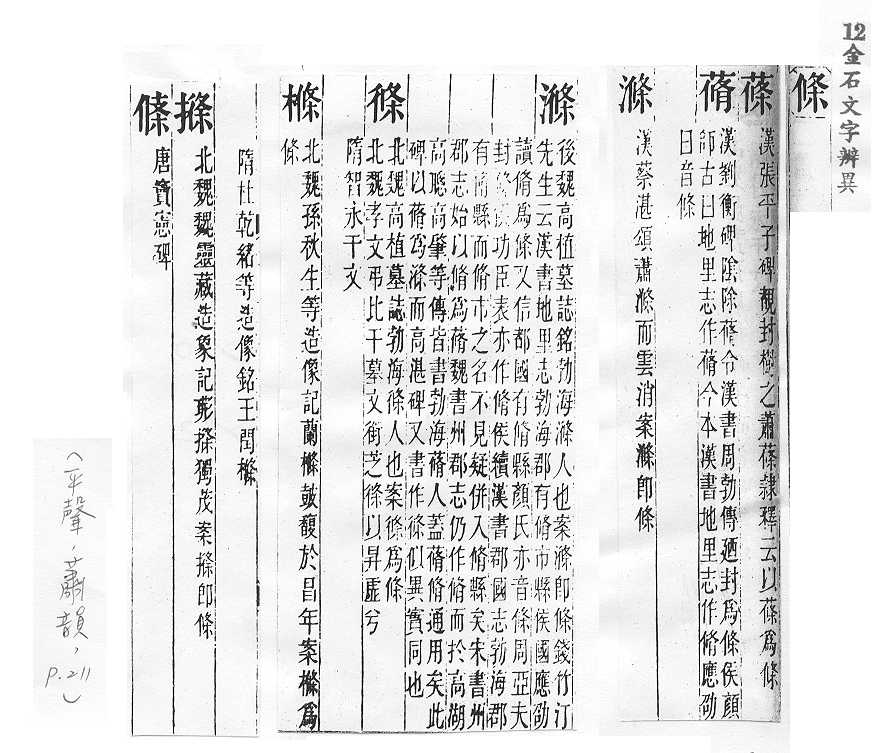 12金石文字辨異
條
蓧
漢張平子碑觀封樹之蕭蓧隸釋云以蓧爲條
蓨
漢劉衡碑陰除蓨令漢書周勃傳廼封爲條侯顏
師古曰地里志作蓨今本漢書地里志作脩應劭
曰音條
滌
漢蔡湛頌蕭滌而雲消案滌即條
滌
後魏高植墓誌銘勃海滌人也案滌即條錢竹汀
先生云漢書地里志勃海郡有脩市縣侯國應劭
讀脩爲條又信都國有脩縣顏氏亦音條周亞夫
封條侯功臣表亦作脩侯續漢書郡國志勃海郡
有脩縣而脩市之名不見疑併入脩縣矣宋書州
郡志始以脩爲蓨魏書州郡志仍作脩而於高湖
高聰高肇等傳皆書勃海蓨人蓋蓨脩通用矣此
碑以蓨爲滌而高湛碑又書作條似異實同也
北魏高植墓誌勃海條人也案條爲條
北魏孝文弔比干墓文衡芝條以昇虛兮
隋智永千文
樤
北魏孫秋生等造像記蘭樤鼓馥於昌年案樤爲
條
隋杜乾緒等造像銘王閏樤
北魏魏靈藏造象記彫搽獨茂案搽即條
唐竇憲碑
(平聲,蕭韻,
P.211)